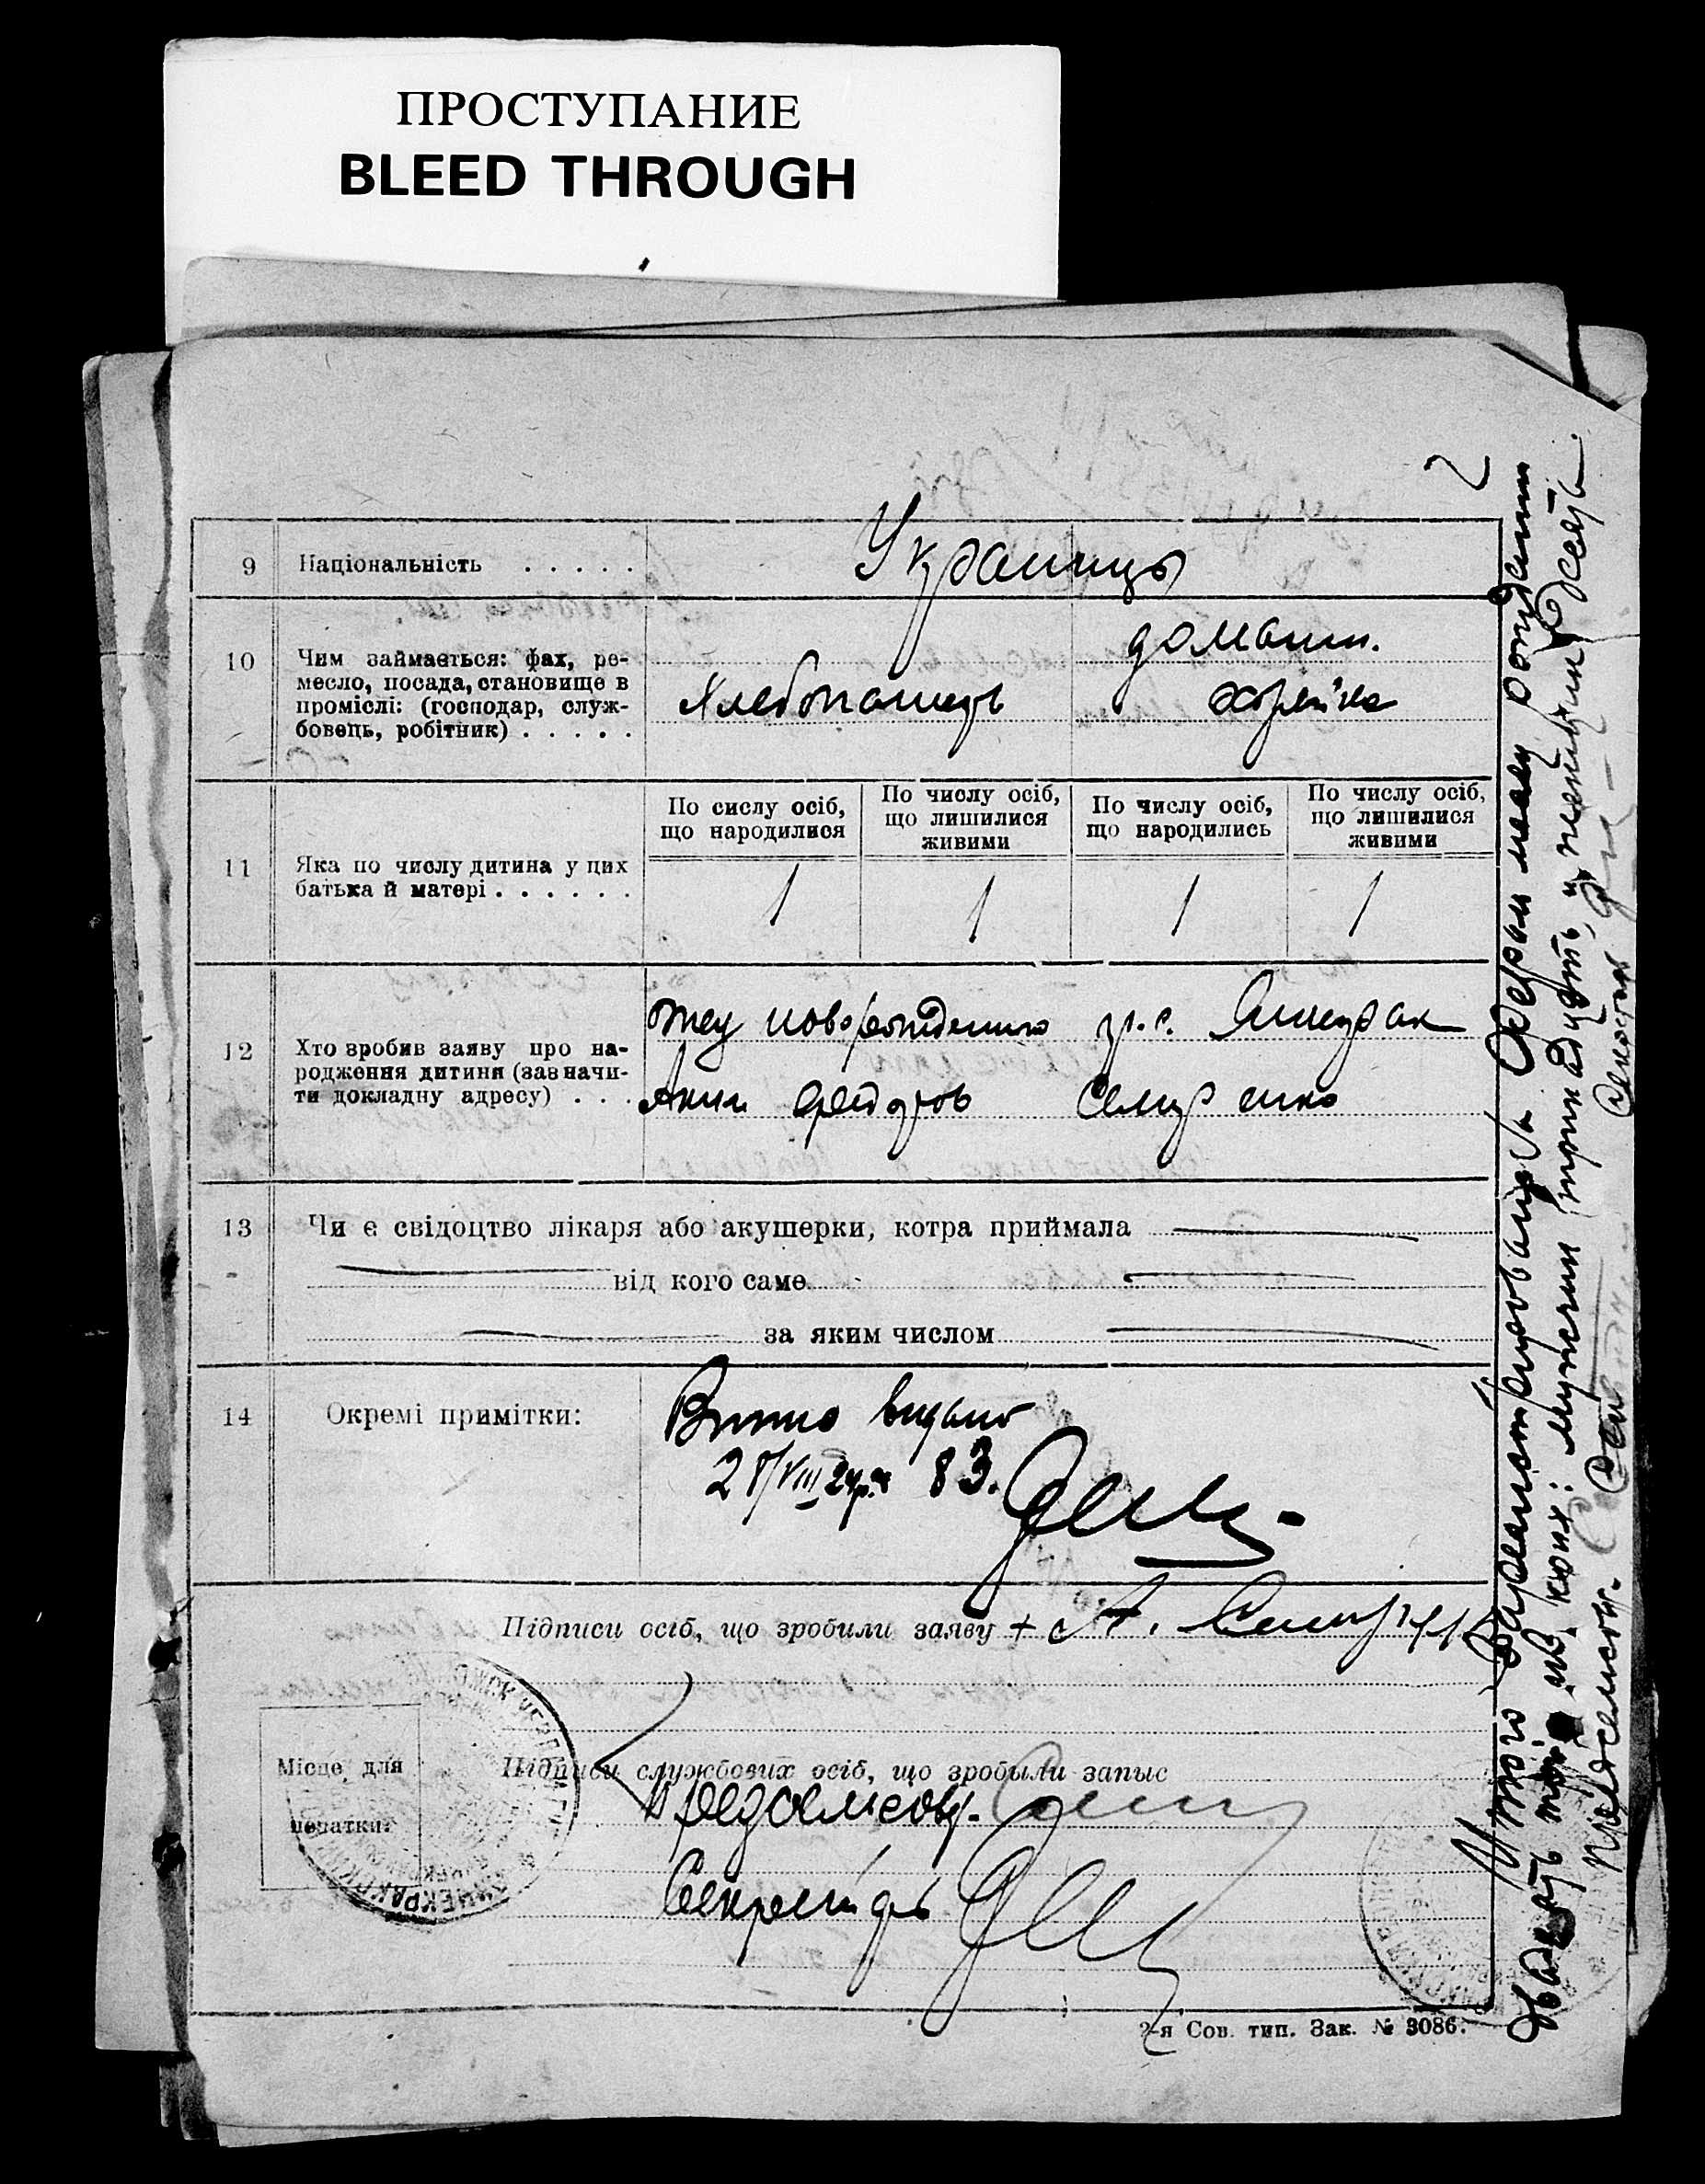 ПРОСТУПАНИЕ
BLEED THROUGH
2
9 Національність . . . . . Украинцы
10 Чим займається: фах, ре-
месло, посада, становище в
проміслі: (господар, служ-
бовець, робітник) . . . . .
домашн.
Хлебопашец хозяйка
11 Яка по числу дитина у цих
батька й матері . . . . . .
По сислу осіб,
що народилися
По числу осіб,
що лишилися
живими
По числу осіб,
що народились
По числу осіб,
що лишилися
живими
1 1 1 1
12 Хто зробив заяву про на-
родження дитини (зазначи-
ти докладну адресу) . . .
отец новорожденного гр. с.
13 Чи є свідоцтво лікаря або акушерки, котра приймала
від кого саме
за яким числом
14 Окремі примітки:
видано
28/VIII 24 р. № 83.
Підписи осіб, що зробили заяву + А.
Місце для
печатки:
Підписи службових осіб, що зробыли запыс
Предсельсов.
Секретарь
2-я Сов. тип. Зак. № 3086.
Итого
двадцать три 23, из коих: мужчин тринадцать, и женщин десять.
Предсельсов. Секретарь